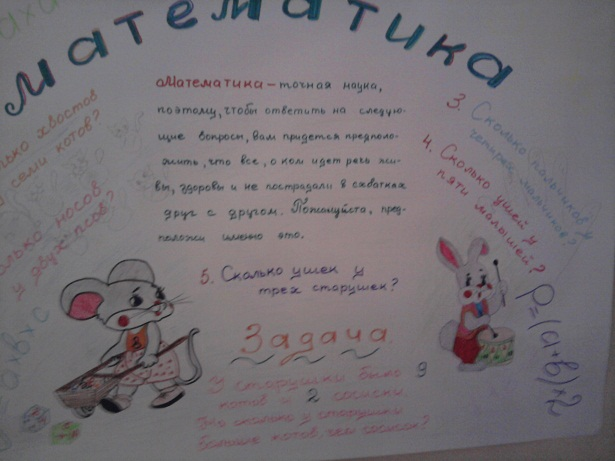 математика
Математика – точная наука,
поэтому, чтобы ответить на следую-
щие вопросы, вам придется предполо-
жить, что все, о ком идет речь жи-
вы, здоровы и не пострадали в схватках
друг с другом. Пожалуйста, пред-
положи именно это.
хвостов
семи котов?
носов
у двух псов?
3. Сколько пальчиков у
четырех мальчиков?
4. Сколько ушей у
пяти малышей?
5. Сколько ушек у
трех старушек?
Задача.
У старушки было 9
котов и 2 сосиски.
На сколько у старушки
больше котов, чем сосисок?
P=(a+b)×2